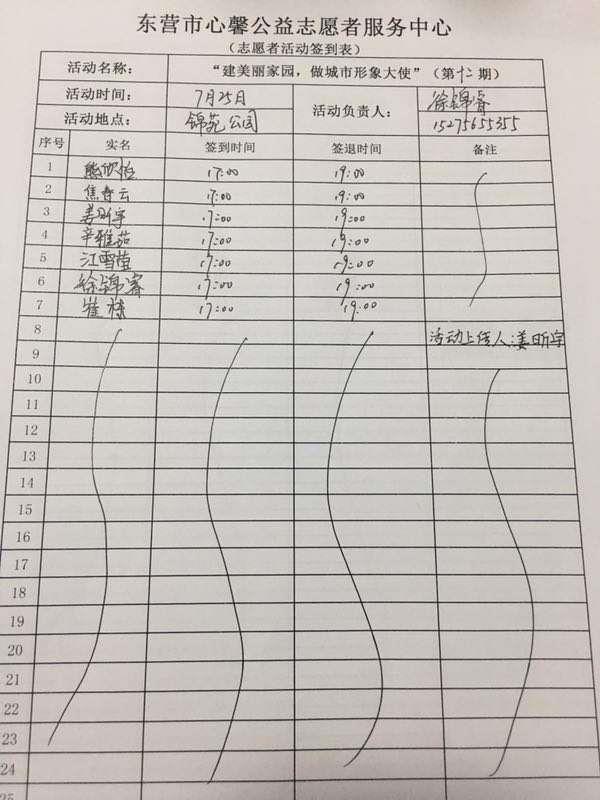 东营市心馨公益志愿者服务中心
（志愿者活动签到表）
活动名称： “建美丽家园，做城市形象大使”（第十二期）
活动时间： 7月25日 活动负责人： 徐锦睿
活动地点： 锦苑公园 15275655355
序号 实名 签到时间 签退时间 备注
1 熊欣怡 17:00 19:00
2 焦春云 17:00 19:00
3 姜昕宇 17:00 19:00
4 辛雅茹 17:00 19:00
5 江雪莹 17:00 19:00
6 徐锦睿 17:00 19:00
7 崔栋 17:00 19:00
8 活动上传人:姜昕宇
9
10
11
12
13
14
15
16
17
18
19
20
21
22
23
24
25